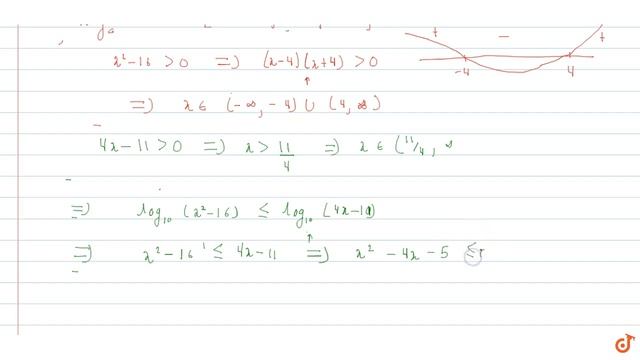 + — +
-4 4
x² - 16 > 0 ⇒ (x-4)(x+4) > 0
⇒ x ∈ (-∞, -4) ∪ (4, ∞)
4x - 11 > 0 ⇒ x > 11/4 ⇒ x ∈ (11/4, ∞
⇒ log₁₀ (x²-16) ≤ log₁₀ (4x-11)
⇒ x² - 16 ≤ 4x - 11 ⇒ x² - 4x - 5 ≤
doubtnut